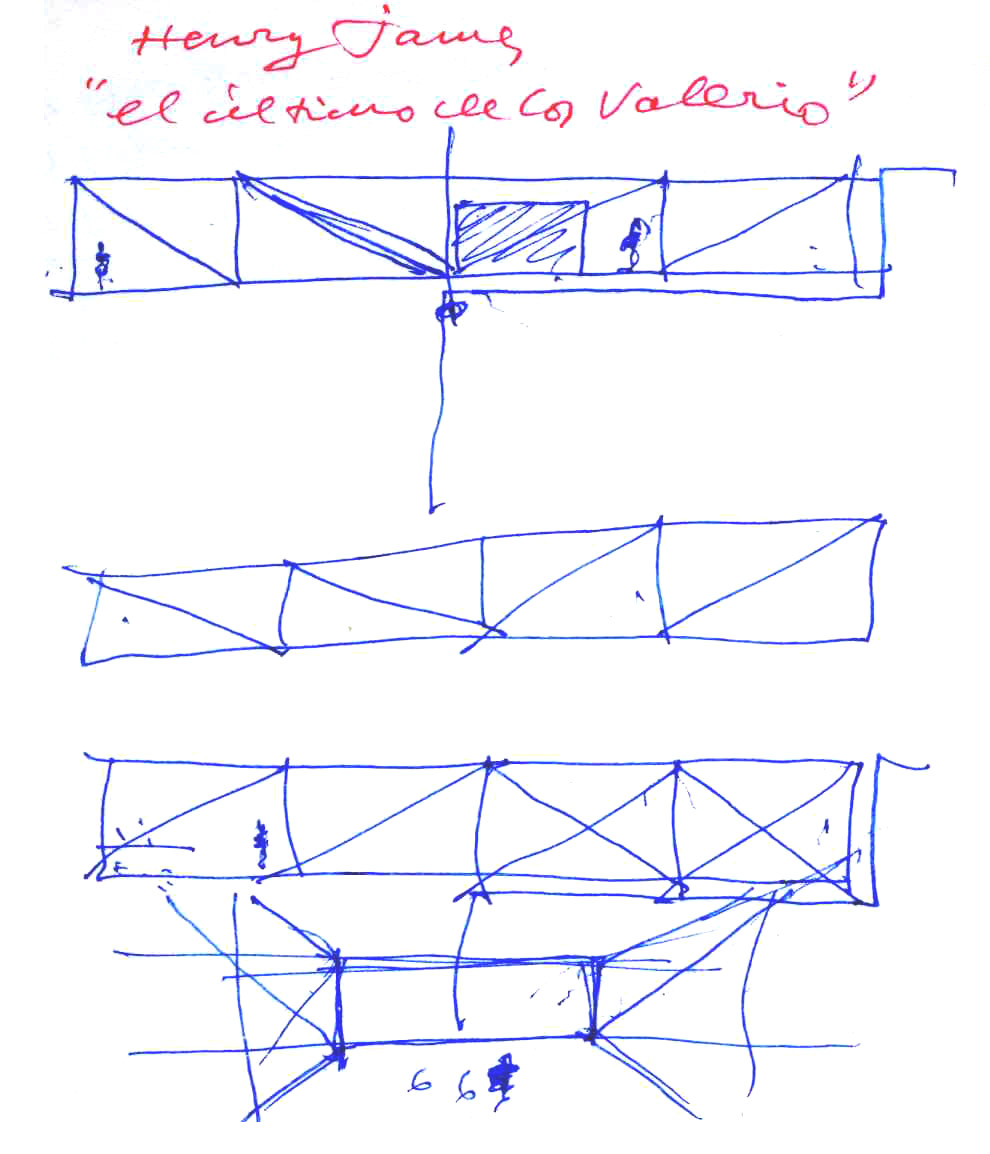 Henry James
"el último de los Valerio"
6 6